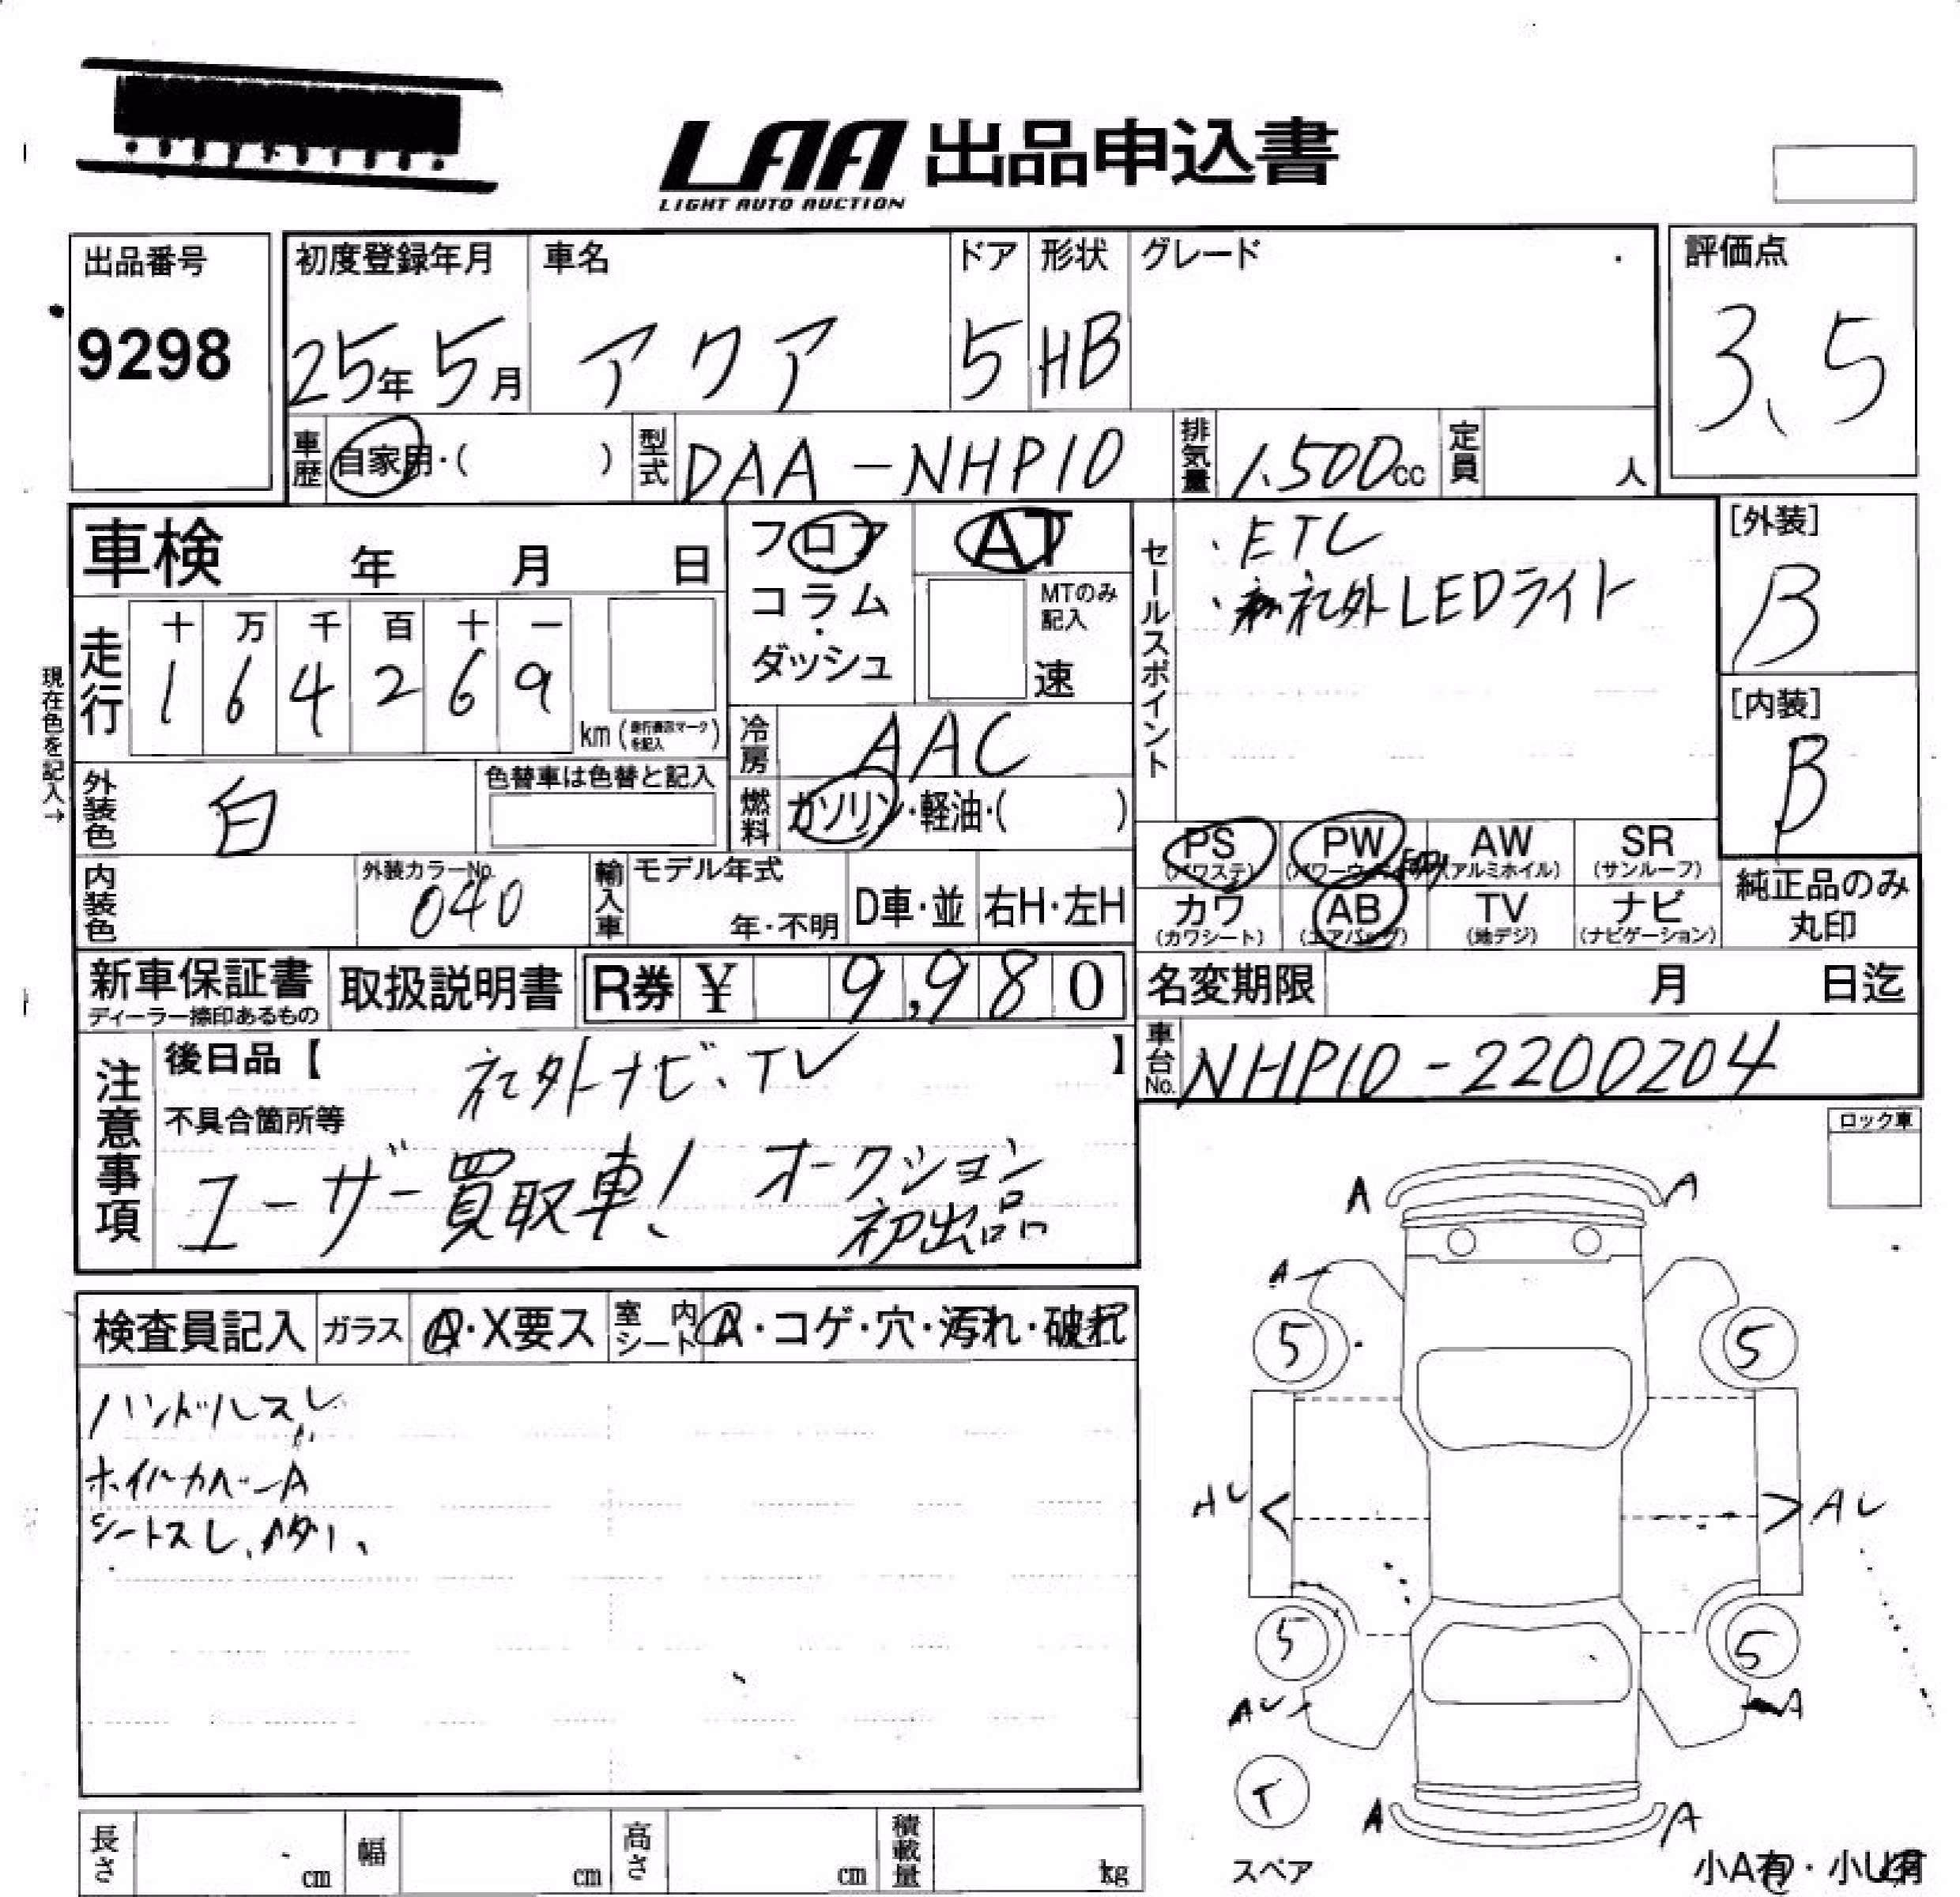 LAA 出品申込書
LIGHT AUTO AUCTION
出品番号
9298
初度登録年月
25年 5月
車名
アクア
ドア
5
形状
HB
グレード
評価点
3、5
車歴 自家用・( )
型式 DAA-NHP10
排気量 1.500cc
定員 人
車検 年 月 日
フロア
コラム
・
ダッシュ
AT
MTのみ
記入
速
走行
十 万 千 百 十 一
1 6 4 2 6 9
km (走行表示マークを記入)
現在色を記入→
冷房 AAC
燃料 ガソリン・軽油・( )
外装色 白
色替車は色替と記入
内装色
外装カラーNo.
040
輸入車
モデル年式
年・不明
D車・並
右H・左H
セールスポイント
・ETC
・社外LEDライト
[外装]
B
[内装]
B
PS
(パワステ)
PW
AW
(アルミホイル)
SR
(サンルーフ)
カワ
(カワシート)
AB
(エアバッグ)
TV
(地デジ)
ナビ
(ナビゲーション)
純正品のみ
丸印
新車保証書
ディーラー捺印あるもの
取扱説明書
R券 ¥ 9,980
名変期限 月 日迄
車台No. NHP10-2200204
注意事項
後日品【 社外ナビ、TV 】
不具合箇所等
ユーザー買取車! オークション
初出品
ロック車
検査員記入
ガラス
A・X要ス
室内シート
A・コゲ・穴・汚れ・破れ
ハンドルスレ
ホイルカバーA
シートスレ、
A
A
A
5
5
AU
AU
5
5
AU
A
T
A
A
スペア
小A有・小U有
長さ cm
幅 cm
高さ cm
積載量 kg